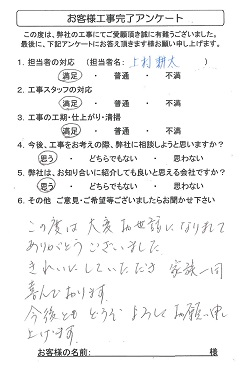 お客様工事完了アンケート
この度は、弊社の工事にてご愛顧頂き誠に有難うございました。
最後に、下記アンケートにお答え頂きます様お願い申し上げます。
1. 担当者の対応 (担当者名: 上村 翔太 )
満足 ・ 普通 ・ 不満
2. 工事スタッフの対応
満足 ・ 普通 ・ 不満
3. 工事の工期・仕上がり・清掃
満足 ・ 普通 ・ 不満
4. 今後、工事をお考えの際、弊社に相談しようと思いますか?
思う ・ どちらでもない ・ 思わない
5. 弊社は、お知り合いに紹介しても良いと思える会社ですか?
思う ・ どちらでもない ・ 思わない
6. その他 ご意見・ご希望等ございましたらお聞かせ下さい
この度は大変お世話になりまして
ありがとうございました
きれいにしていただき 家族一同
喜んでおります。
今後とも どうぞ よろしくお願い申し
上げます.
お客様の名前: 様